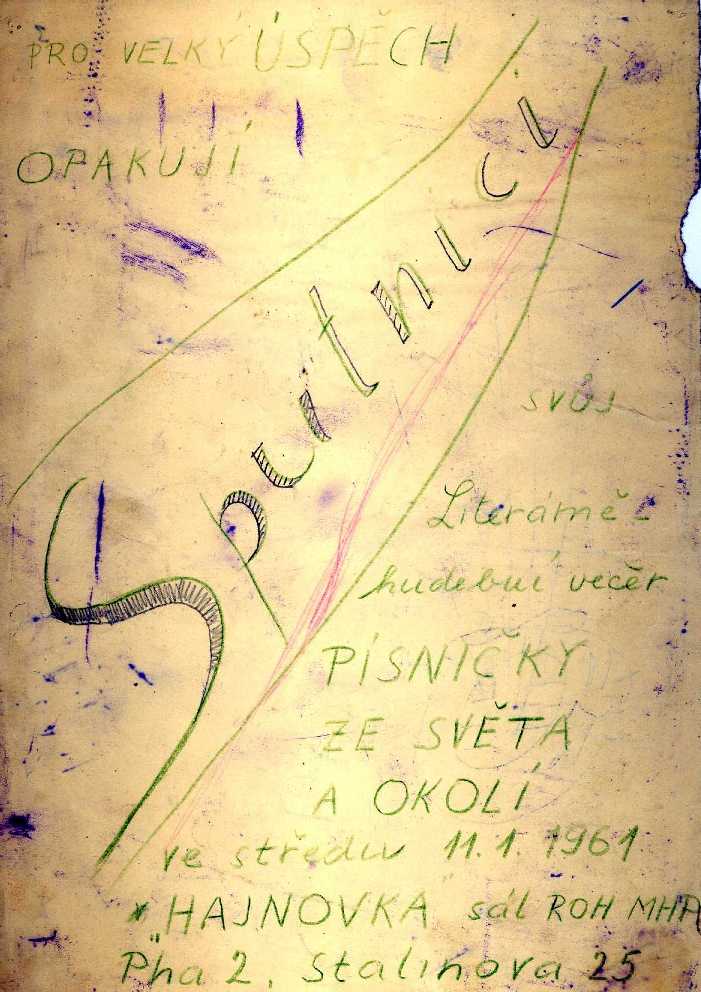 PRO VELKÝ ÚSPĚCH
OPAKUJÍ
Sputnici
SVŮJ
Literárně-
hudební večer
PÍSNIČKY
ZE SVĚTA
A OKOLÍ
ve středu 11.1.1961
v „HAJNOVKA" sál ROH MHP
Pha 2, Stalinova 25